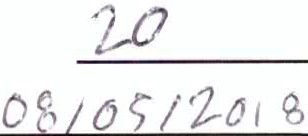 20
08/05/2018